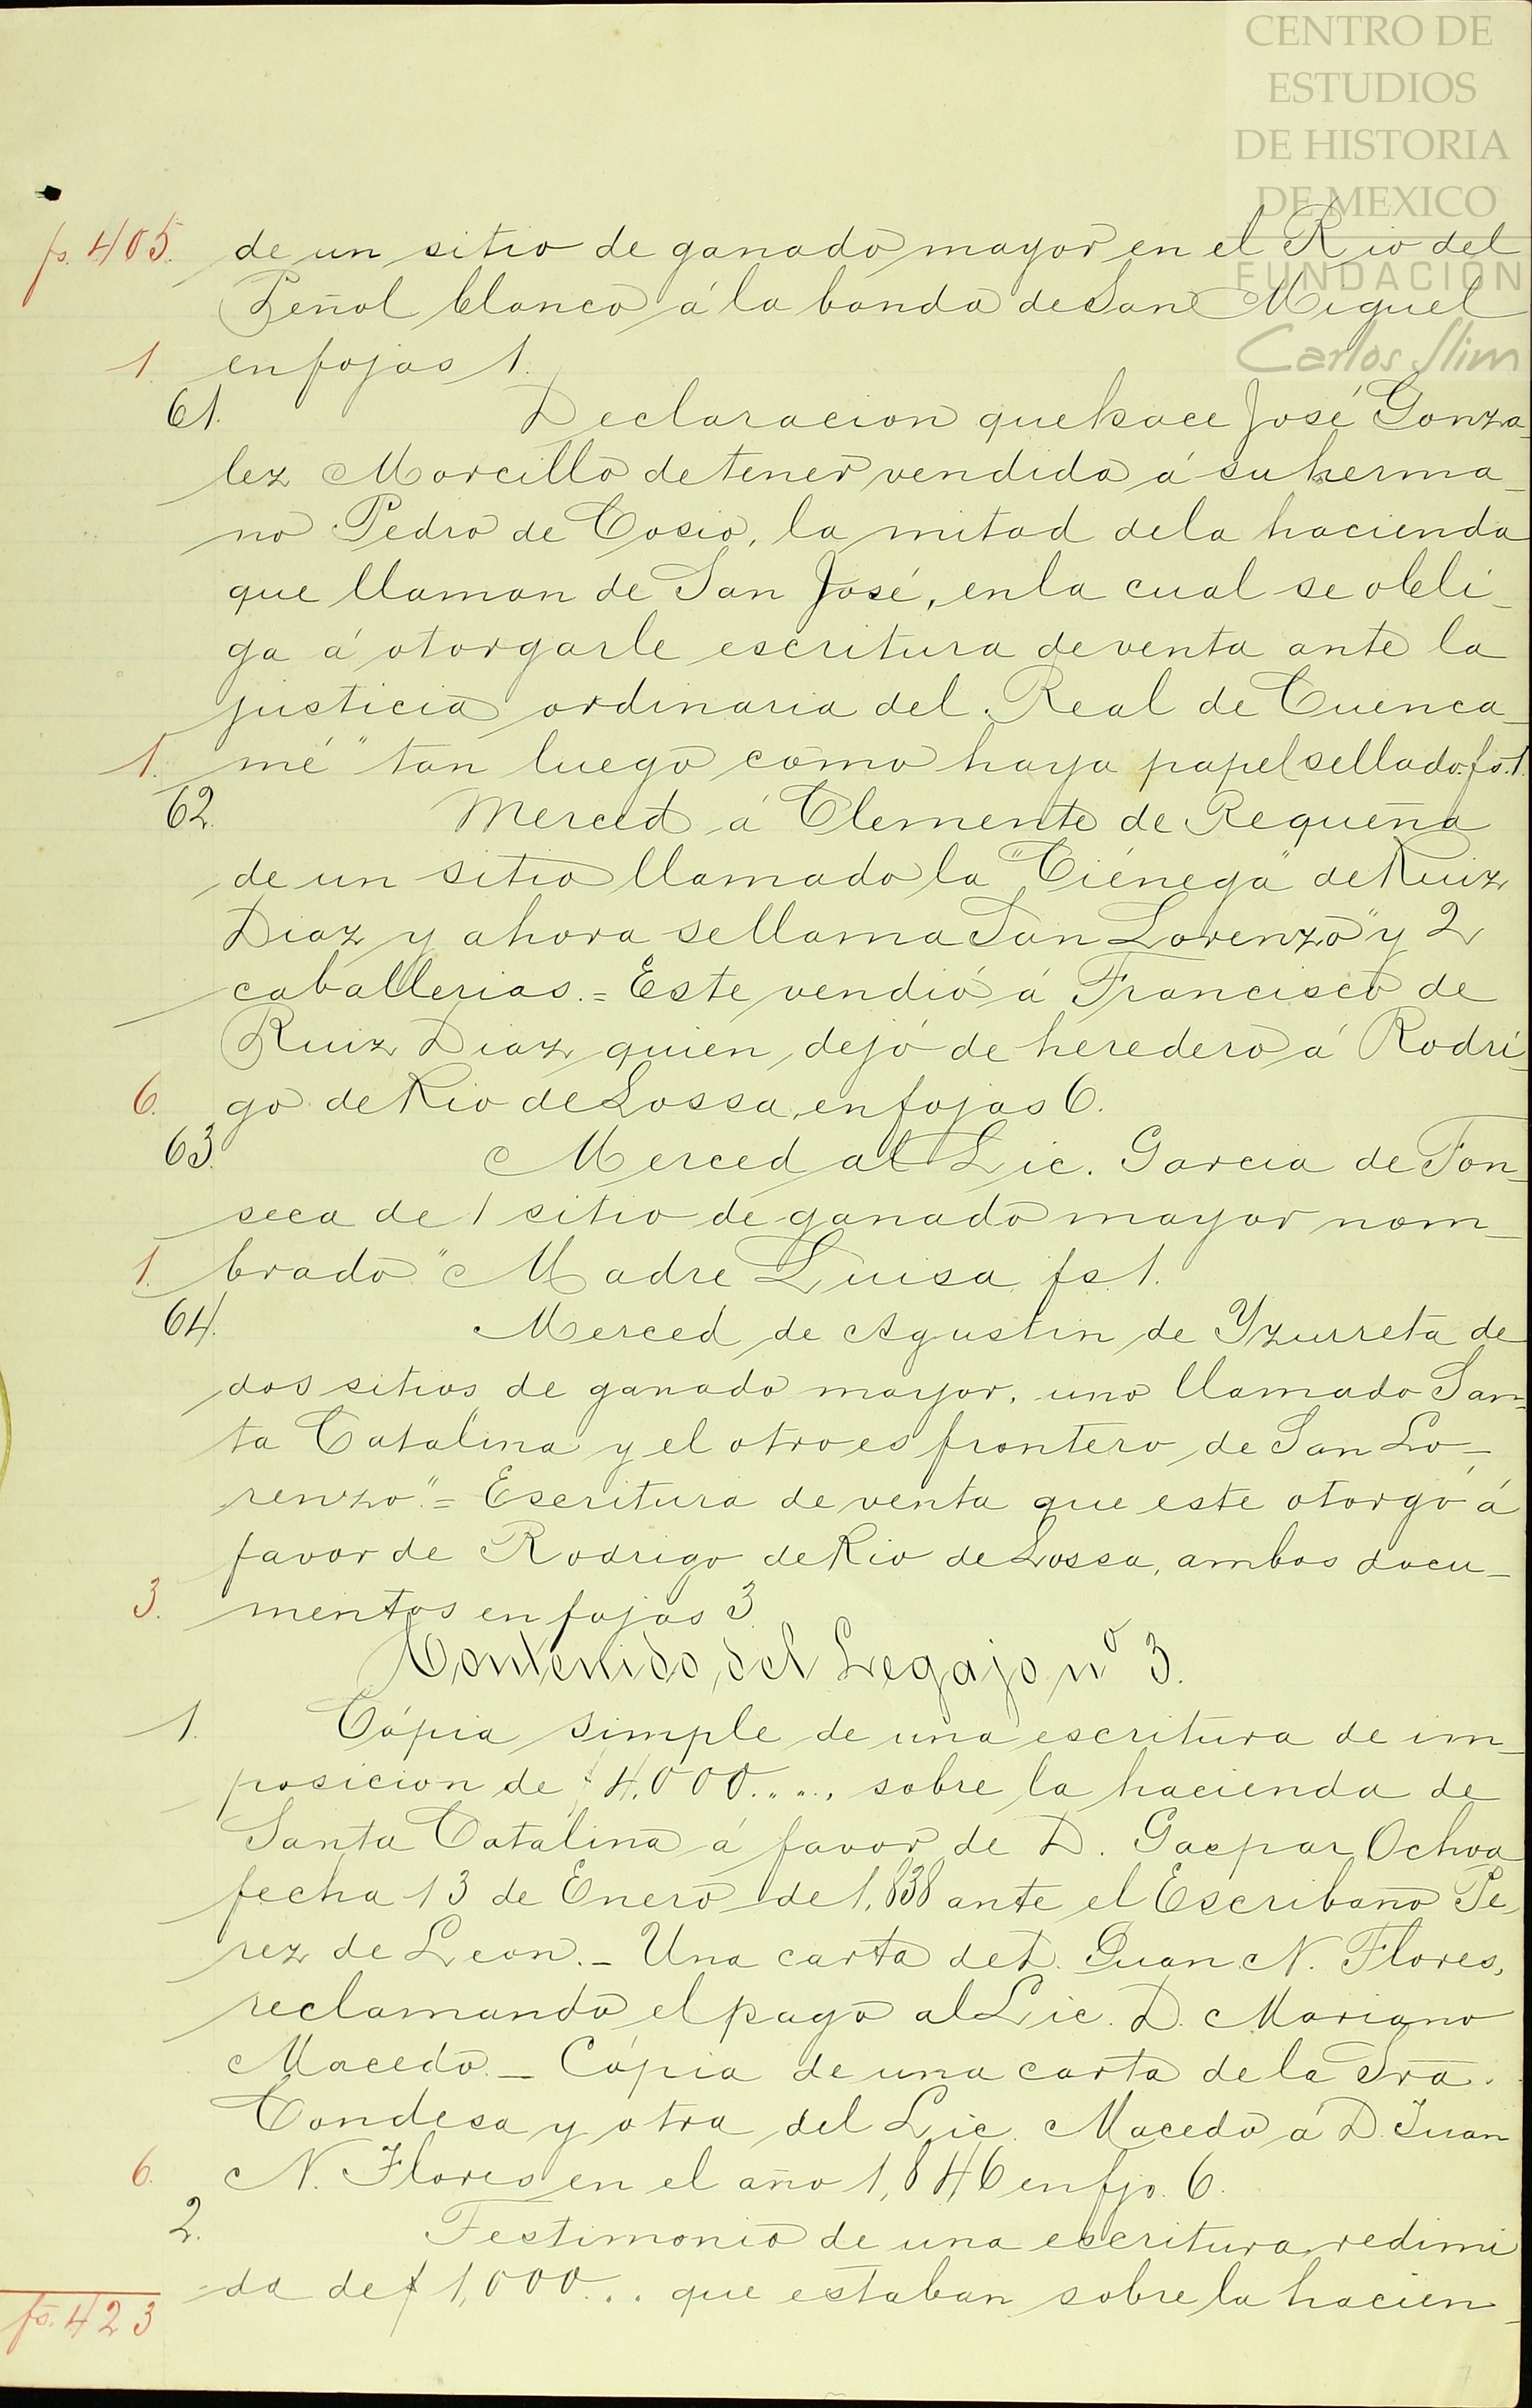 CENTRO DE
ESTUDIOS
DE HISTORIA
DE MEXICO
FUNDACIÓN
Carlos Slim
fs. 405. de un sitio de ganado mayor en el Rio del
Peñol blanco á la banda de San Miguel
1. en fojas 1.
61. Declaracion que hace José Gonza-
lez Morcillo de tener vendida á su herma-
no Pedro de Cosio, la mitad de la hacienda
que llaman de San José, en la cual se obli-
ga á otorgarle escritura de venta ante la
justicia ordinaria del Real de Cuenca-
1. mé" tan luego como haya papel sellado. fs. 1.
62. Merced á Clemente de Requena
de un sitio llamado la "Ciénega" de Ruiz
Diaz y ahora se llama San Lorenzo" y 2
caballerias. = Este vendió á Francisco de
Ruiz Diaz quien dejó de heredero á Rodri-
6. go de Rio de Lossa, en fojas 6.
63. Merced al Lic. Garcia de Fon-
seca de 1 sitio de ganado mayor nom-
1. brado "Madre Luisa fs 1.
64. Merced de Agustin de Yzurreta de
dos sitios de ganado mayor, uno llamado San-
ta Catalina y el otro es frontero de San Lo-
renzo". = Escritura de venta que este otorgó á
favor de Rodrigo de Rio de Lossa, ambos docu-
3. mentos en fojas 3
Contenido del Legajo nº 3.
1. Cópia simple de una escritura de im-
posicion de $ 4,000.... sobre la hacienda de
Santa Catalina á favor de D. Gaspar Ochoa
fecha 13 de Enero de 1,838 ante el Escribano Pe-
rez de Leon. - Una carta de D. Juan N. Flores,
reclamando el pago al Lic. D. Mariano
Macedo. - Cópia de una carta de la Sra.
Condesa y otra del Lic. Macedo á D. Juan
6. N. Flores en el año 1,846 en fjs. 6.
2. Testimonio de una escritura redimi
da de $ 1,000... que estaban sobre la hacien-
fs. 423